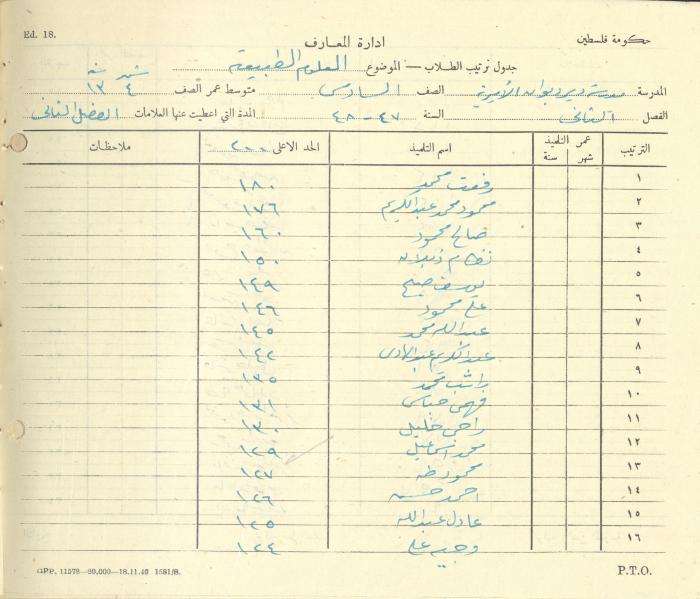 Ed. 18.
حكومة فلسطين
ادارة المعارف
جدول ترتيب الطلاب — الموضوع العلوم الطبيعية
المدرسة مدرسة ديرديوان الأميرية الصف السادس متوسط عمر الصف شهر ٤ سنة ١٣
الفصل الثاني السنة ٤٧ - ٤٨ المدة التي اعطيت عنها العلامات الفصل الثاني
الترتيب عمر التلميذ شهر سنة اسم التلميذ الحد الاعلى ٢٠٠ ملاحظات
١ رفعت محمد ١٨٠
٢ محمود محمد عبدالكريم ١٧٦
٣ صالح محمود ١٦٠
٤ نظام ١٥٠
٥ يوسف صبح ١٤٩
٦ علي محمود ١٤٦
٧ عبدالله محمد ١٤٥
٨ عبدالكريم عبدالهادي ١٤٢
٩ راتب محمد ١٣٥
١٠ فهمي عباس ١٣١
١١ راجي خليل ١٣٠
١٢ محمد اسماعيل ١٢٩
١٣ محمود طه ١٢٧
١٤ احمد حسن ١٢٦
١٥ عادل عبدالله ١٢٥
١٦ وجيه علي ١٢٤
GPP. 11578—60,000—18.11.40 1581/8.
P.T.O.